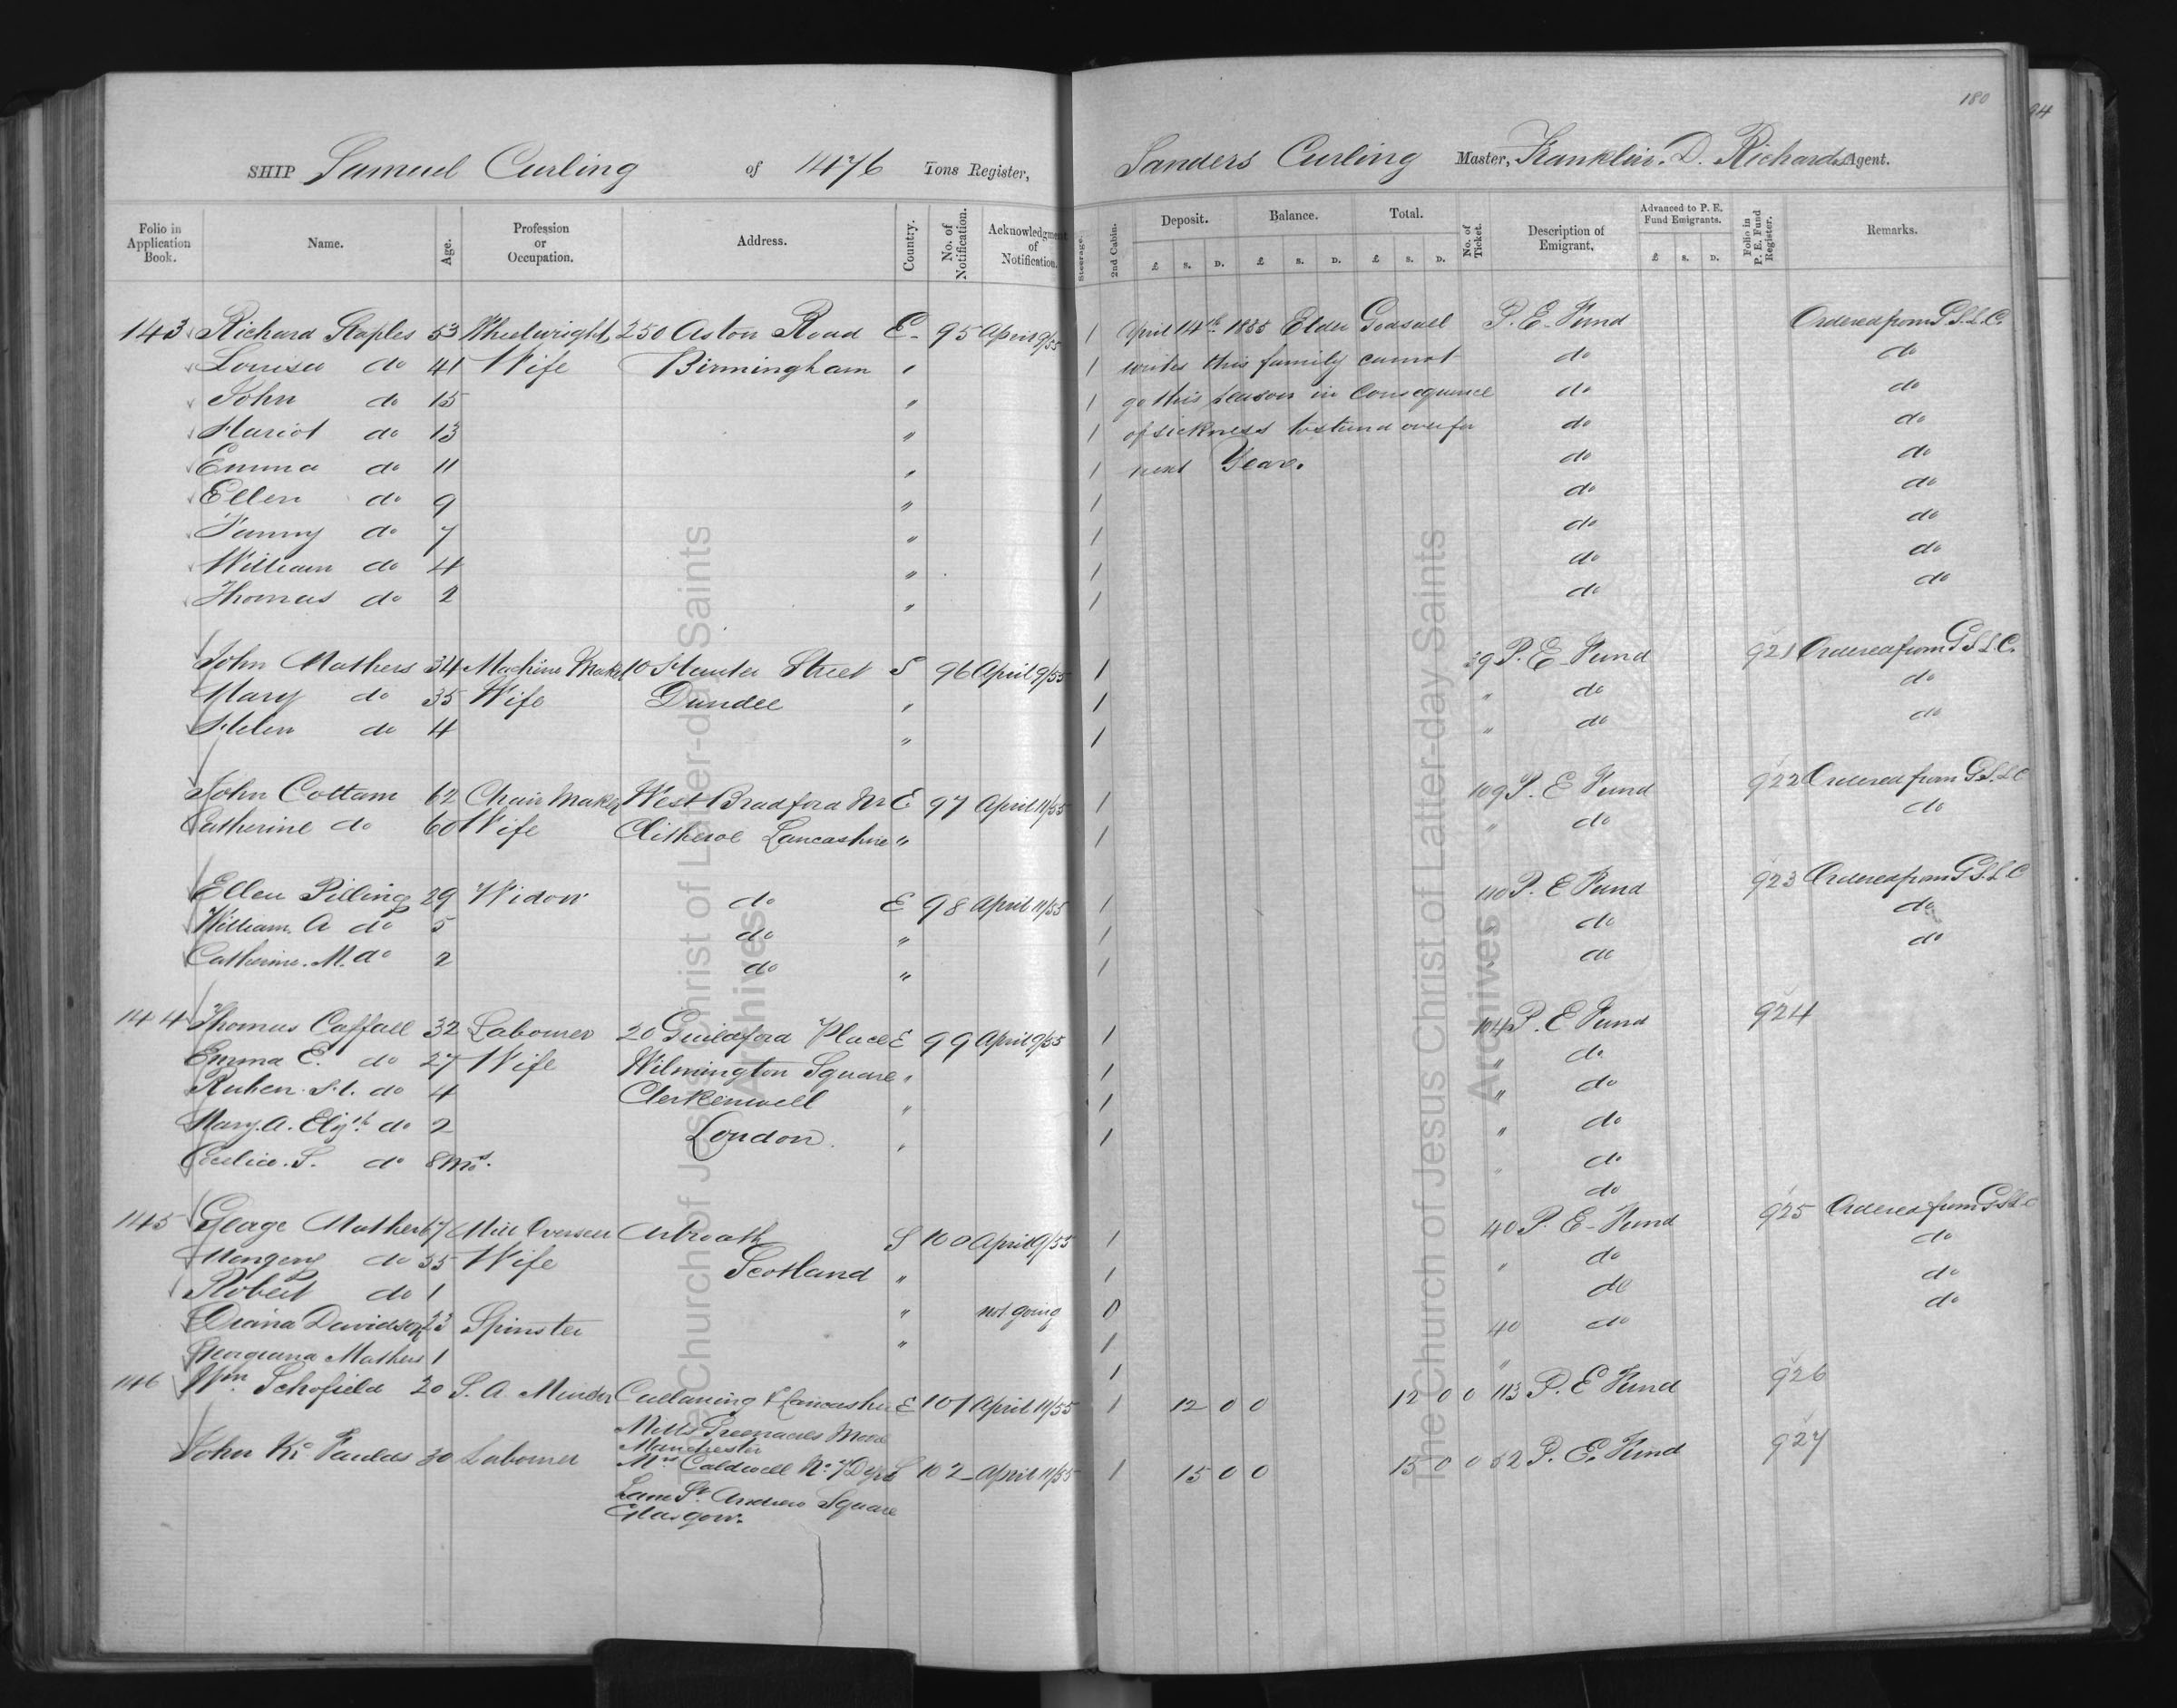 180
94
SHIP Samuel Curling of 1476 Tons Register, Sanders Curling Master, Franklin. D. Richards Agent.
Folio in Application Book. Name. Age. Profession or Occupation. Address. Country. No. of Notification. Acknowledgment of Notification. Steerage. 2nd Cabin. Deposit. £ S. D. Balance. £ S. D. Total. £ S. D. No. of Ticket. Description of Emigrant. Advanced to P. E. Fund Emigrants. £ S. D. Folio in P. E. Fund Register. Remarks.
143 Richard Staples 53 Wheelwright 250 Aston Road E. 95 April 9/55 1 April 14th 1855 Elder Godsall P. E. Fund Ordered from G.S.L.C.
Louisa do 41 Wife Birmingham " 1 writes this family cannot do do
John do 15 " 1 go this season in consequence do do
Hariot do 13 " 1 of sickness to stand over for do do
Emma do 11 " 1 next Year. do do
Ellen do 9 " 1 do do
Fanny do 7 " 1 do do
William do 4 " 1 do do
Thomas do 2 " 1 do do
John Mathers 34 Machine Maker 10 Hunter Street S 96 April 9/55 1 39 P. E. Fund 921 Ordered from G S L C.
Mary do 35 Wife Dundee " 1 " do do
Helen do 4 " 1 " do do
John Cottam 62 Chair Maker West Bradford Nr E 97 April 11/55 1 109 P. E Fund 922 Ordered from G.S.L C
Catherine do 60 Wife Clitheroe Lancashire " 1 " do do
Ellen Pilling 29 Widow do E 98 April 11/55 1 110 P. E Fund 923 Ordered from G S L C
William. A do 5 do " 1 do do
Catherine. M. do 2 do " 1 " do do
144 Thomas Caffall 32 Labourer 20 Guildford Place E 99 April 9/55 1 104 P. E Fund 924
Emma E. do 27 Wife Wilmington Square " 1 " do
Ruben. H. do 4 Clerkenwell " 1 " do
Mary. A. Elizth do 2 London. " 1 " do
Cecelia. S. do 8 Mos. " do
do
145 George Mathers 67 Mill Overseer Arbroath S 100 April 9/55 1 40 P. E. Fund 925 Ordered from G S L C
do 55 Wife Scotland " 1 " do do
Robert do 1 " not going 0 do do
Diana Davidson 23 Spinster " 1 40 do do
Georgeana Mathers 1 1 "
146 Wm. Schofield 20 S. A. Minder Lancashire E 101 April 11/55 1 12 0 0 12 0 0 113 P. E Fund 926
Mills Greenacres Moor
Manchester
John Faulds 30 Labourer Mrs Caldwell No. 7 S 102 April 11/55 1 15 0 0 15 0 0 52 P. E. Fund 927
Lane St. Andrew Square
Glasgow.
The Church of Jesus Christ of Latter-day Saints
Archives
The Church of Jesus Christ of Latter-day Saints
Archives